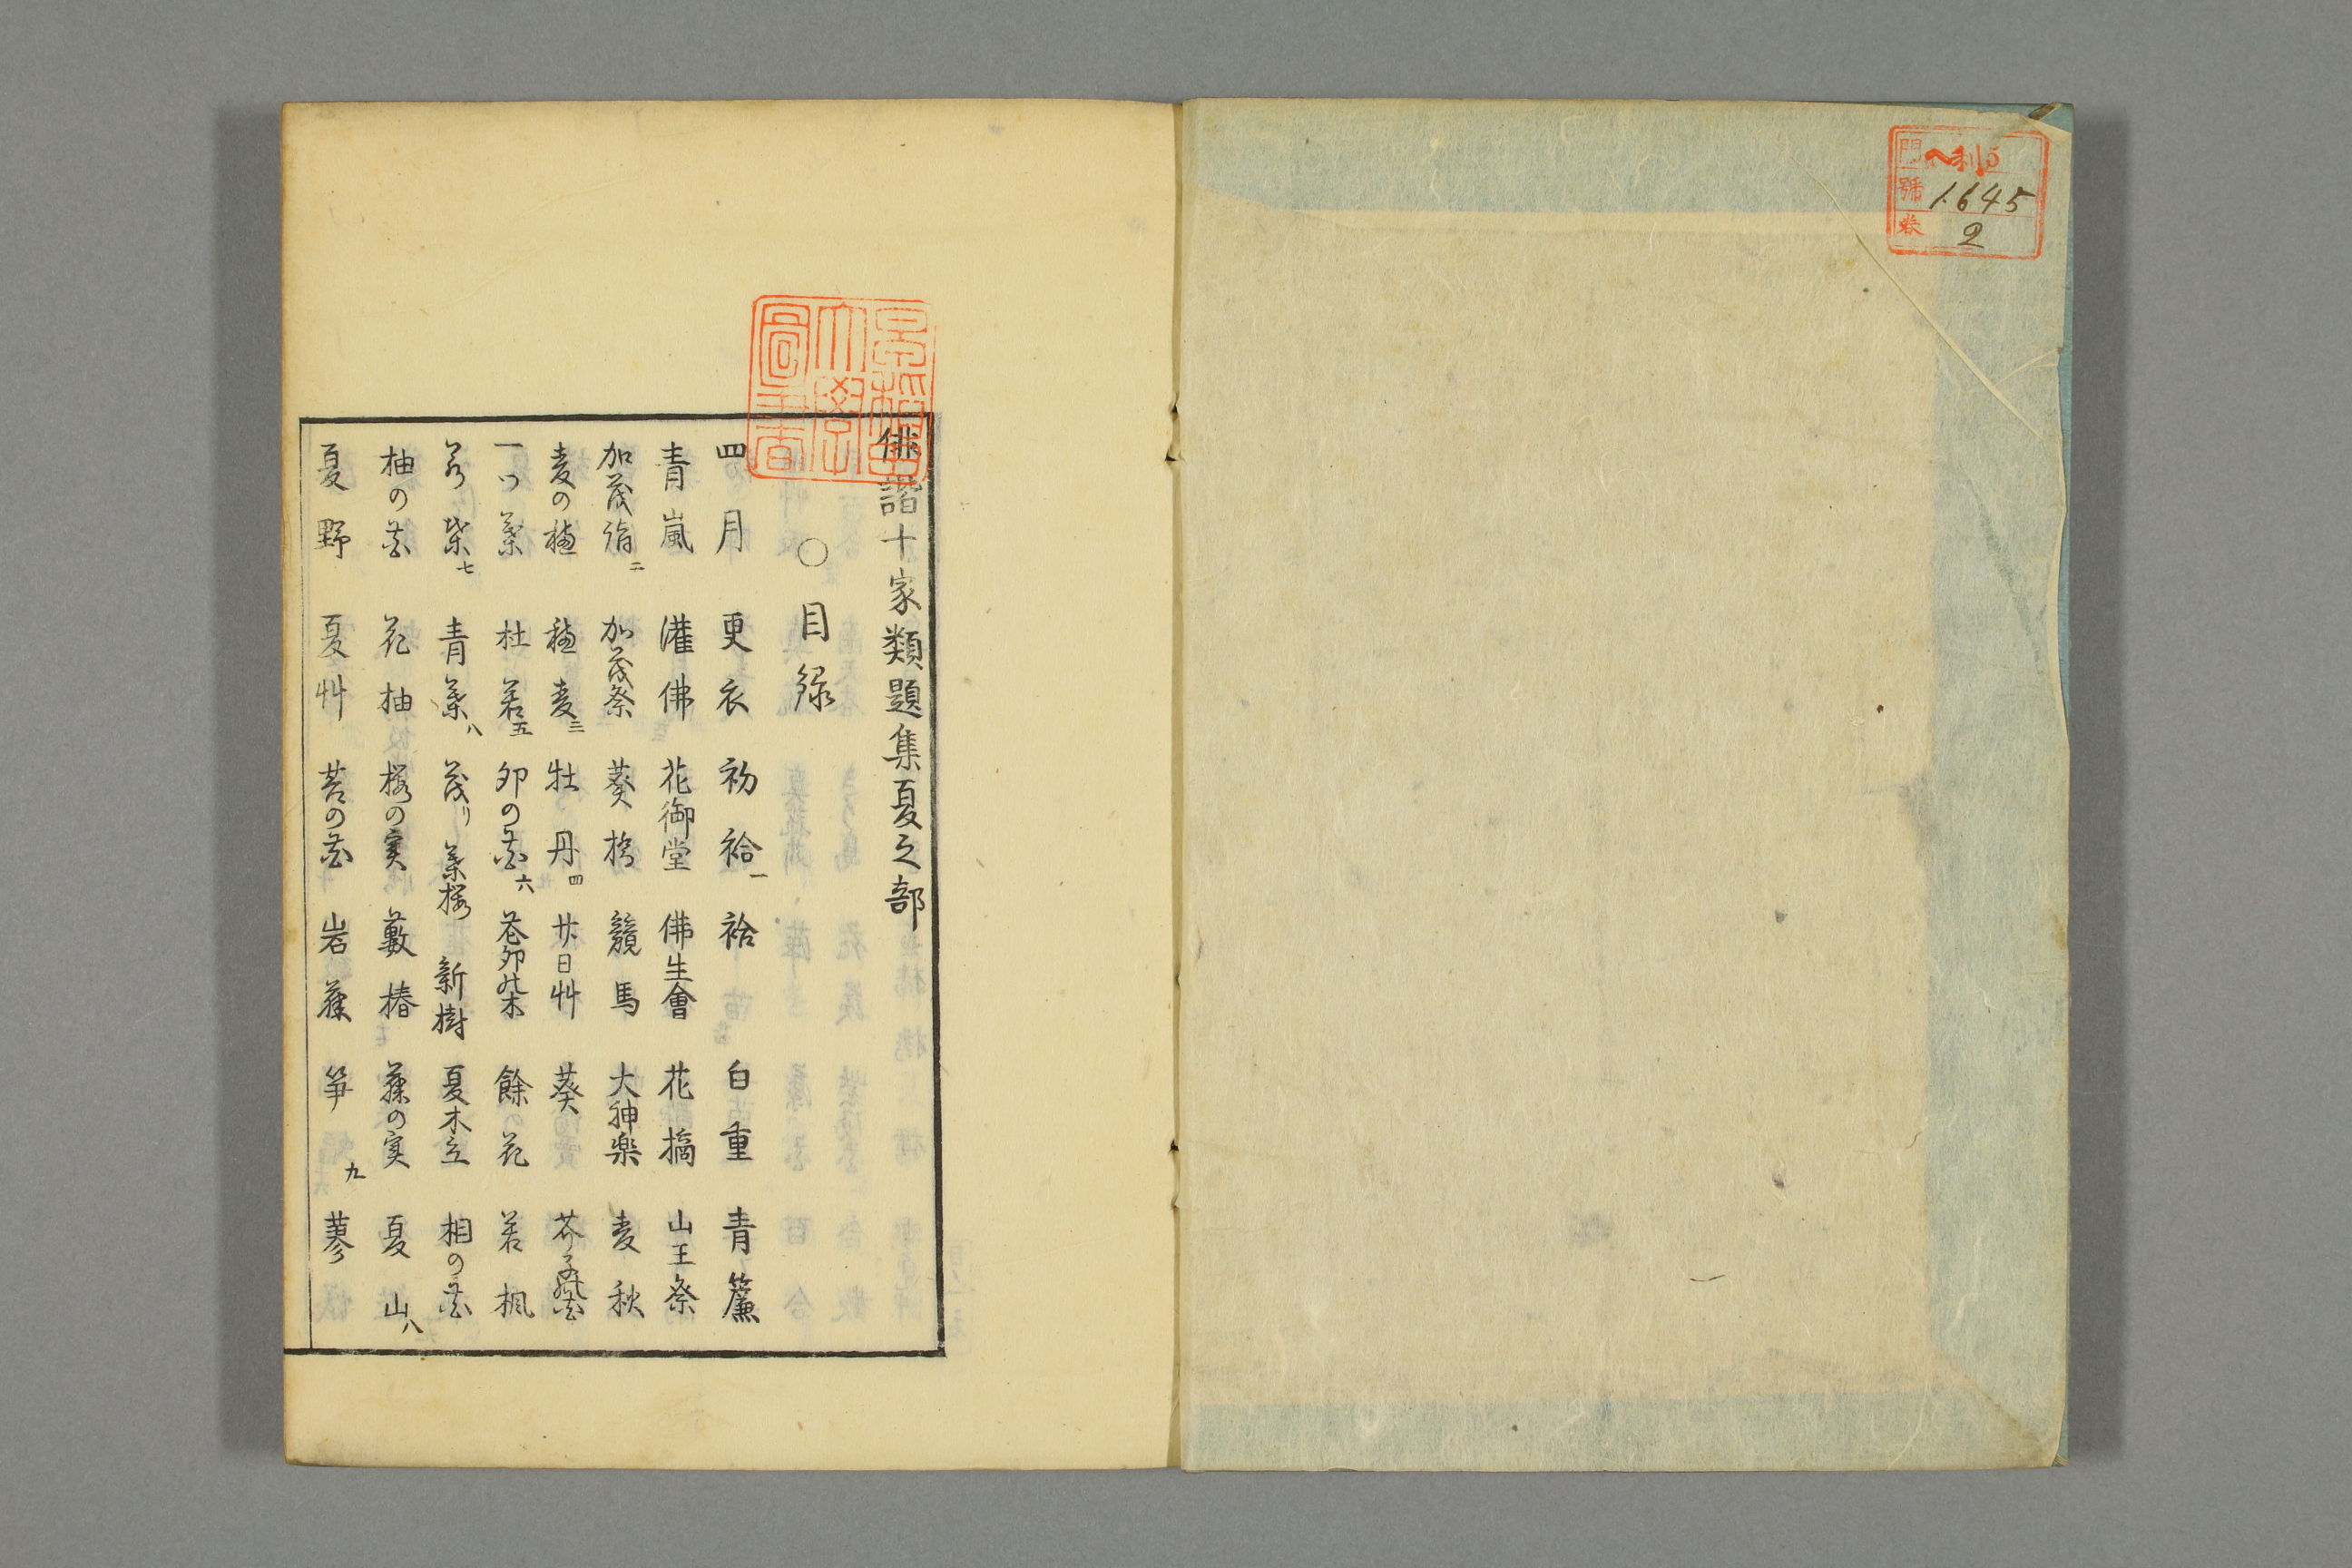 門 ヘ利5
號 1645
卷 2
早稲田大學圖書
俳諧十家類題集夏之部
○目録
四月 更衣 初袷一 袷 白重 青簾
青嵐 灌佛 花御堂 佛生會 花摘 山王祭
加茂詣二 加茂祭 葵桂 競馬 大神楽 麦秋
麦の穂 穂麦三 牡丹四 廿日艸 葵 芥子の花
一ツ葉 杜若五 卯の花六 花卯木 餘花 若楓
若葉七 青葉八 茂り 葉桜 新樹 夏木立 柏の花
柚の花 花柚 桜の実 藪椿 藤の実 夏山八
夏野 夏艸 苔の花 岩藤 笋九 蓼